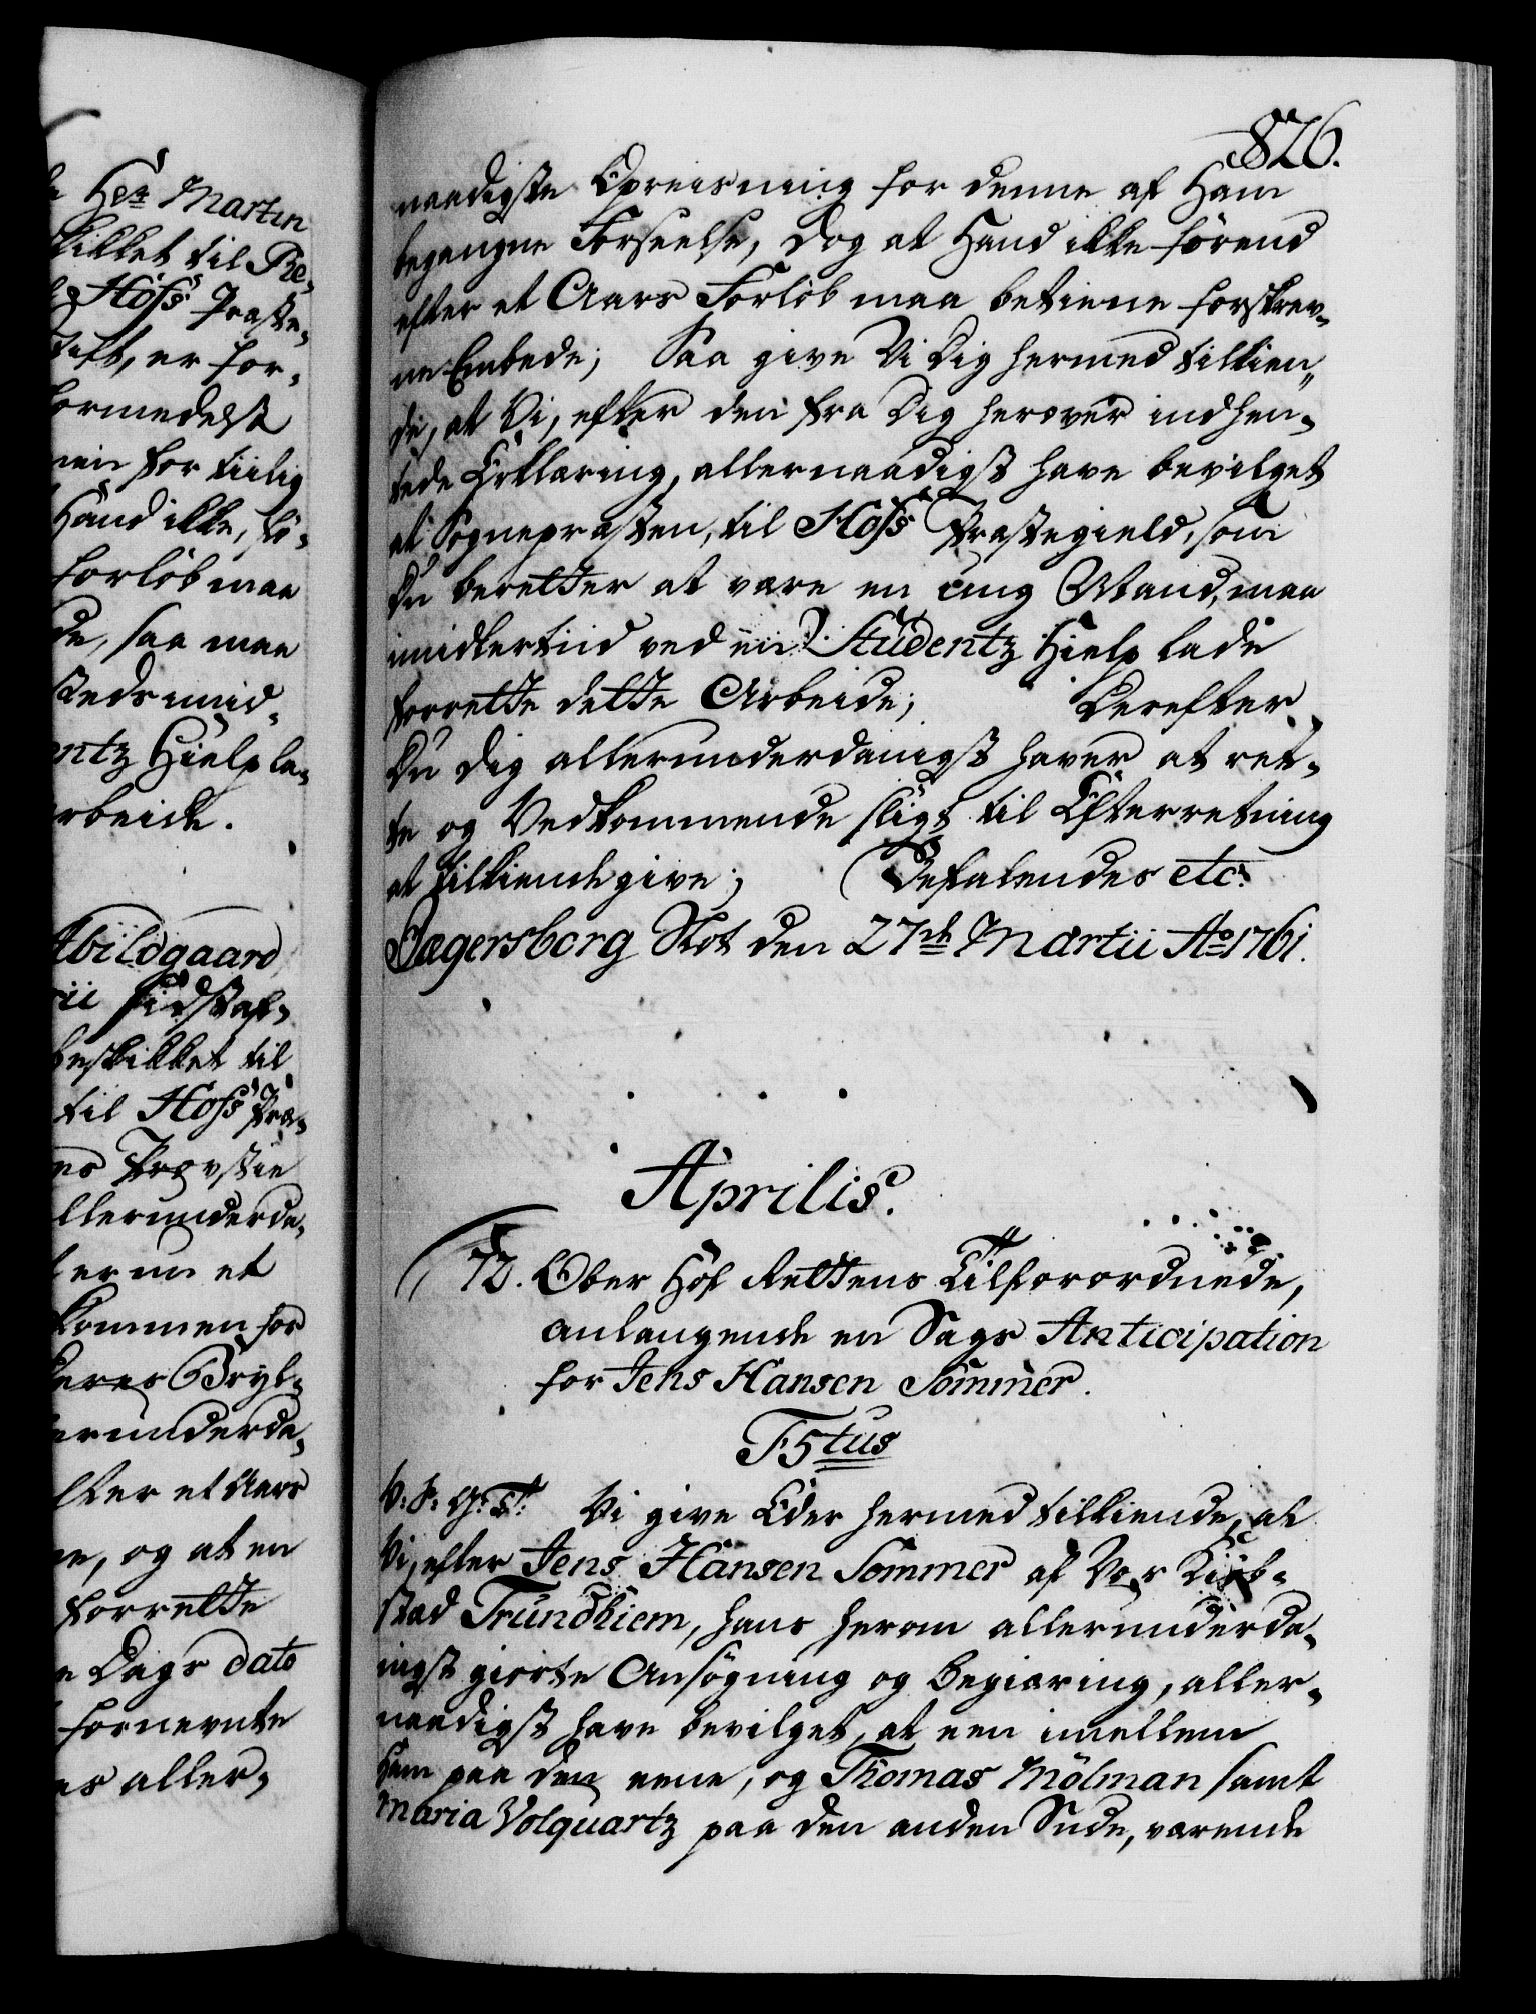 Hr Martin
skikket til Re-
Hofs Præste-
Stift, er for-
formedelst
for tiilig
Hand ikke, fø-
forløb maa
de, saa maa
steds imid-
entz Hielp la-
rbeide.
Abildgaard
rii sidstaf-
beskikket til
til Hofs Præ-
es Provstie
llerunderda-
et
kommen for
deres Bryl-
erunderda-
fter et Aars
ne, og at en
forrette
Dags dato
fornevnte
es aller-
826.
naadigste Opreisning for denne af Ham
begangne Forseelse, dog at Hand ikke førend
efter et Aars Forløb maa betiene forskrev-
ne Embede; Saa give Vi Dig hermed tilkien-
de, at Vi, efter den fra Dig herover indhen-
tede Erklæring, allernaadigst have bevilget
at Sognepræsten, til Hofs Præstegield, som
Du beretter at være en ung Mand, maa
imidlertiid ved en Studentz Hielp lade
forrette dette Arbeide; Derefter
Du Dig allerunderdanigst haver at ret-
te og Vedkommende sligt til Efterretning
at tilkiendegive; Befalendes etc:
Jægersborg Slot den 27de Martii Ao 1761.
Aprilis.
72. Ober Hof Rettens Tilforordnede,
anlangende en Sags Anticipation
for Jens Hansen Sommer.
F5tus
V: S: G: T: Vi give Eder hermed tilkiende, at
Vi, efter Jens Hansen Sommer af Vor Kiøb-
stad Trundhiem, hans herom allerunderda-
nigst giorte Ansøgning og Begiæring, aller-
naadigst have bevilget, at een imellem
Ham paa den eene, og Thomas Mölman samt
Maria Volquartz paa den anden Side, værende